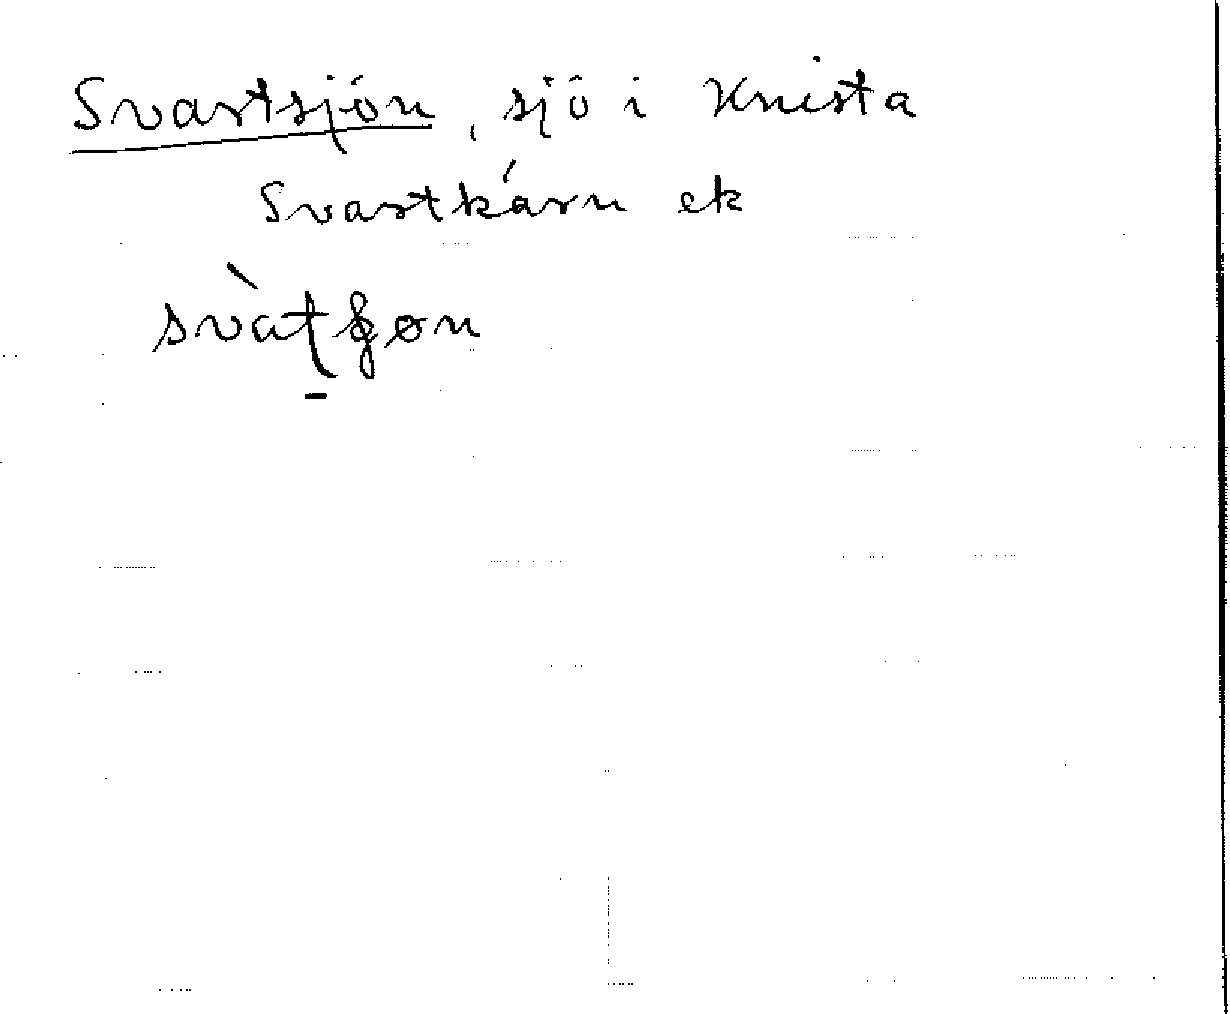 Svartsjön, sjö i Knista
Svartkärn ek
svàt̠ʂøn